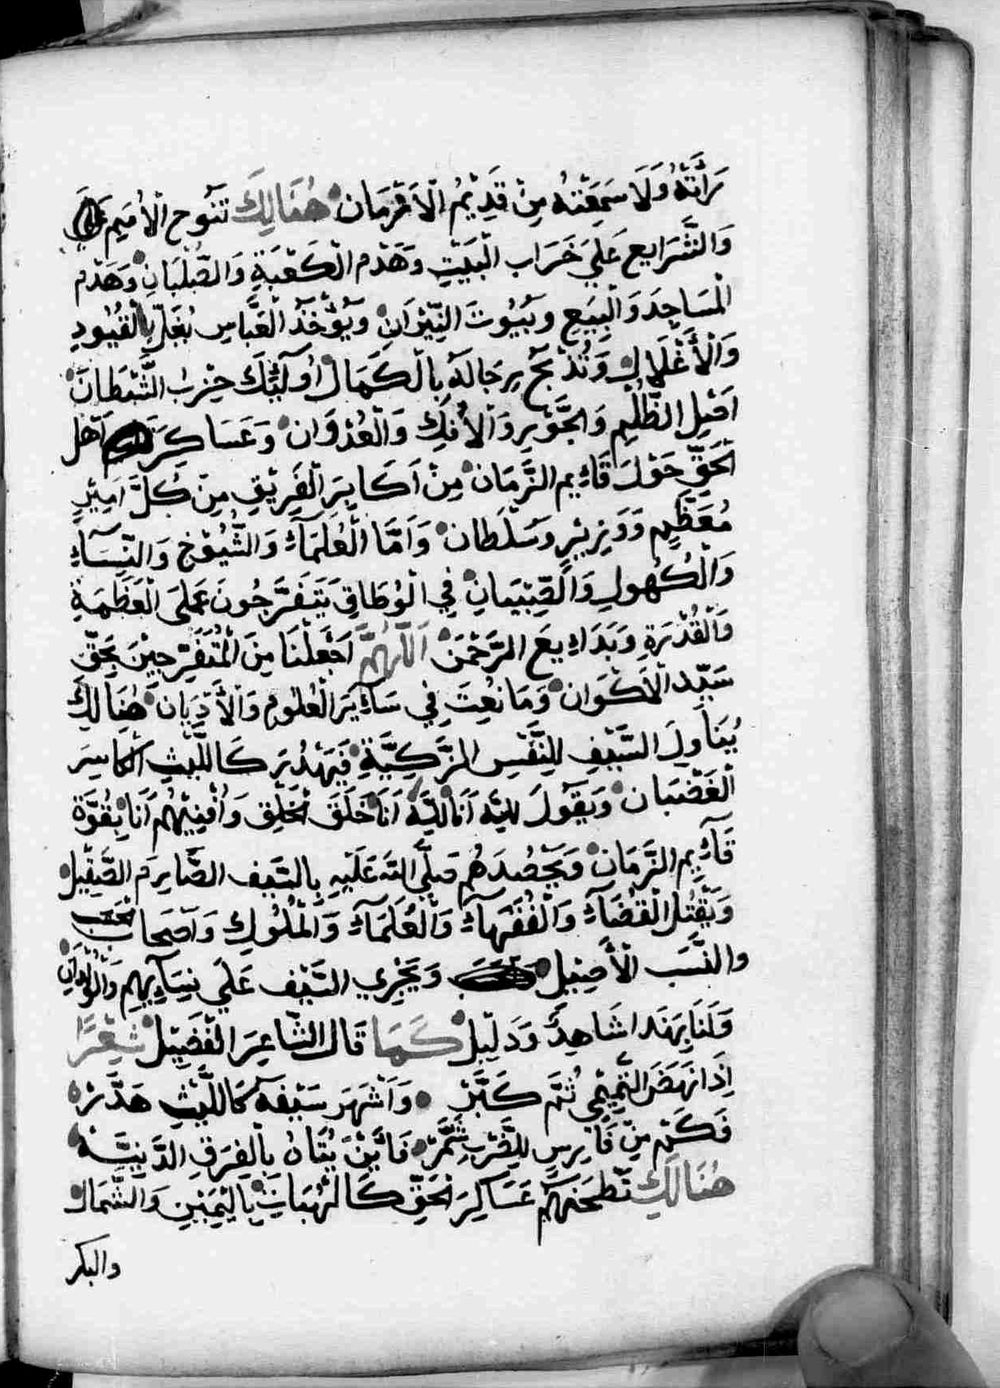 رَأَتْهُ وَلَا سَمِعَتْهُ مِنْ قَدِيْمُ الْاَزْمَان هُنَالِكَ تَنُوح الْاُمَمِ
وَالشَّرَايِع عَلَي خَرَاب الْبَيْتِ وَهَدْم الْكَعْبَةِ وَالصُّلْبَانِ وَهَدْم
الْمَسَاجِدَ وَالْبِيَعِ وبُيُوتَ النِّيْرَانِ وَيُؤْخَذْ الْعَبَّاسِ بُغَلِّ بِالْقُيُودِ
وَالْأَغْلَالِ وَتُذْبَحْ رِجَالَهُ بِالْكَمَال أُولَٓئِكَ حِزْبُ الشَّيْطَانَ
اَهْلِ الظُّلْمِ وَالجَّوْرِ وَالْاُفْكِ وَالْعُدْوَان وَعَسَاكِرَ اَهْل
الْحَقِّ حَوْلَ قَآئِم الزَّمَان مِنْ اَكَابِرَ الْفَرِيْقِ مِنْ كُلَّ اَمِيْرٍ
مُعَظَّمٍ وَوَزِيْرٍ وَسُلْطَان وَاَمَّا الْعُلَمَآء وَالشُّيُوْخ وَالنِّسَآءِ
وَالْكُهُولِ وَالصِّبْيَانِ فِي الْوُطَاقِ يَتَفَرَّجُونَ عَلَى الْعَظَمَةِ
وَالْقُدْرَةِ وَبَدَايِعَ الرَّحْمَنْ اَللّٰهُمَّ اَجْعَلْنَا مِنَ الْمُتَفَرِّجِيْنَ بَحَقّ
سَيِّد الْاَكْوَان وَمَا نُعِتَ فِي سَآئِرَ الْعُلُومِ وَالْأَدْيَان هُنَالِكَ
يُنَاوِلَ السَّيْفِ لِلنَّفْسِ الزَّكِيَّةِ فَيَهْدُرَ كَاللَّيْثِ الكَاسِرَ
الْغَضْبَان وَيَقُولَ لِلّٰهِ اَنَا لِلّٰهْ اَنَا خَلَقَ الْخَلْقِ وَاُفْنِيْهُم اَنَا بِقُوَّة
قَآئِم الزَّمَان وَيَحْصُدَهُم صَلَّي اللّٰه عَلَيْهِ بِالسَّيف الصَّارِم الصَّقِيْل
وَيَقْتُل الْقُضَآة وَالْفُقَهَآء وَالْعُلَمَآء وَالْمُلُوكِ وَاَصْحَاب الْحَسَب
وَالنَّسَب الْأَصِيْل وَيَجْرِي السَّيْف عَلَي نِسَآئِهِم وَالْوِلْدَانِ
وَلَنَا بِهَذَا شَاهِدٌ وَدَلِيْل كَمَا قَال الشَّاعِرَ الْفَضِيْل شِعْرًا
اِذَا نَهَضَ التَّمِيْمِي ثُمَّ كَبَّرْ وَاَشْهَرَ سَيْفَهُ كَاللَّيْثِ هَدَّرْ
فَكَمْ مِنْ فَارِسٍ لِلضَّرْبِ شَمَّرْ فَأَيْنَ يُقَانُ بِالْفِرَقِ الدَّنِيَّة
هُنَالِكَ تَطْحَنَهُم عَسَاكِرَ الْحَقِّ كَالْهَبَآءِ بِاليَمِيْنِ وَالشِّمَالِ
والبكر